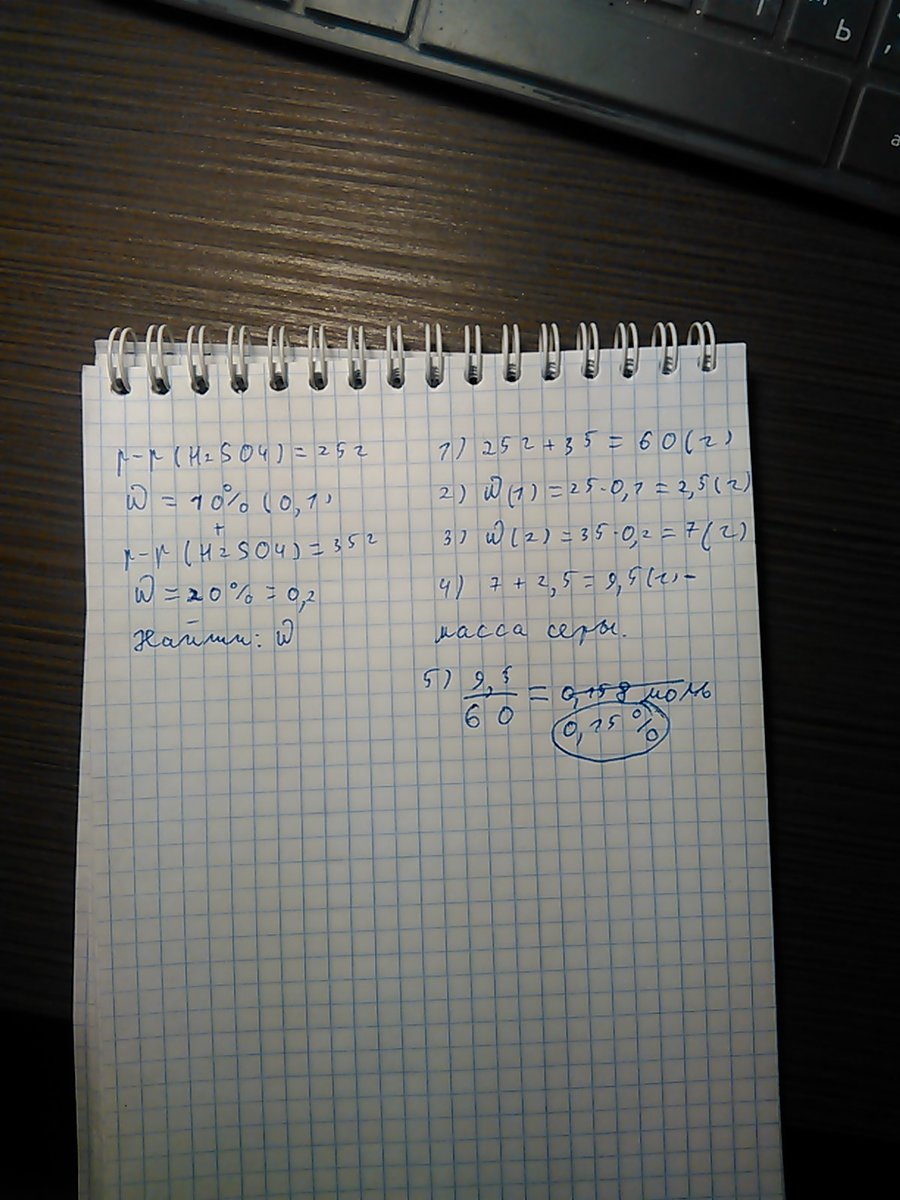 р-р (H2SO4) = 25г
W = 10% (0,1)
+
р-р (H2SO4) = 35г
W = 20% = 0,2
Найти: W
1) 25г + 35 = 60 (г)
2) W(1) = 25·0,1 = 2,5 (г)
3) W(2) = 35·0,2 = 7 (г)
4) 7 + 2,5 = 9,5 (г) -
масса серы.
5) 9,5/60 = 0,158 моль
0,15%
Ь